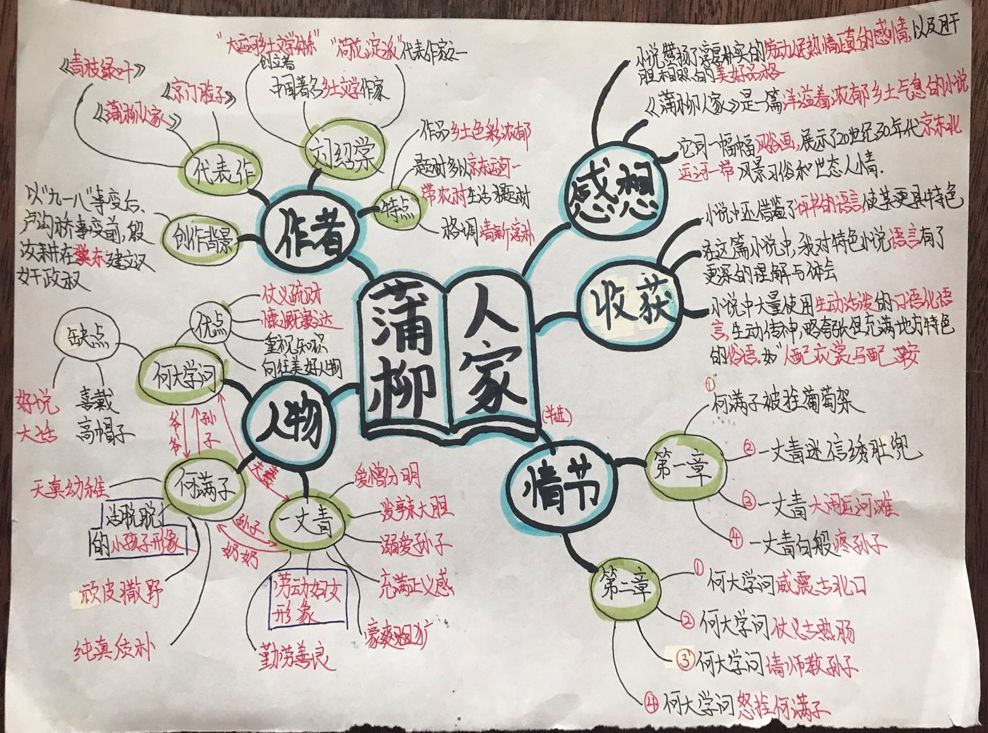 蒲柳
人家
作者
代表作
《青枝绿叶》
《京门脸子》
《蒲柳人家》
刘绍棠
创立者
代表作家之一
中国著名乡土文学作家
特点
作品乡土色彩浓郁
题材多以京东运河一
带农村生活为题材
格调清新淳朴
创作背景
以"九一八"事变后、
卢沟桥事变前,殷
汝耕在冀东建立汉
奸政权
人物
何大学问
优点
仗义疏财
慷慨豁达
重视知识
向往美好人物
缺点
好说
大话
喜戴
高帽子
爷爷
孙子
夫妻
何满子
天真幼稚
活脱脱
的小孩子形象
顽皮撒野
纯真质朴
孙子
奶奶
一丈青
爱憎分明
泼辣大胆
溺爱孙子
充满正义感
豪爽粗犷
勤劳善良
劳动妇女
形象
感想
小说赞扬了京东朴实的劳动人民热情正直的感情,以及肝
胆相照的美好品格
《蒲柳人家》是一篇洋溢着浓郁乡土气息的小说
它司一幅幅风俗画,展示了20世纪30年代京东北
运河一带风景习俗和世态人情.
收获
小说中还借鉴了评书的语言使其更具特色
在这篇小说中,我对特色小说语言有了
更深的理解与体会
小说中大量使用生动活泼的口语化语
言,生动传神,略夸张但充满地方特色
的俗语.如"人配衣裳马配鞍
情节
第一章
①
何满子被拴葡萄架
②一丈青迷信绣肚兜
③一丈青大闹运河滩
④一丈青百般疼孙子
第二章
①何大学问威震古北口
②何大学问仗义古热肠
③何大学问请师教孙子
④何大学问怒拴何满子